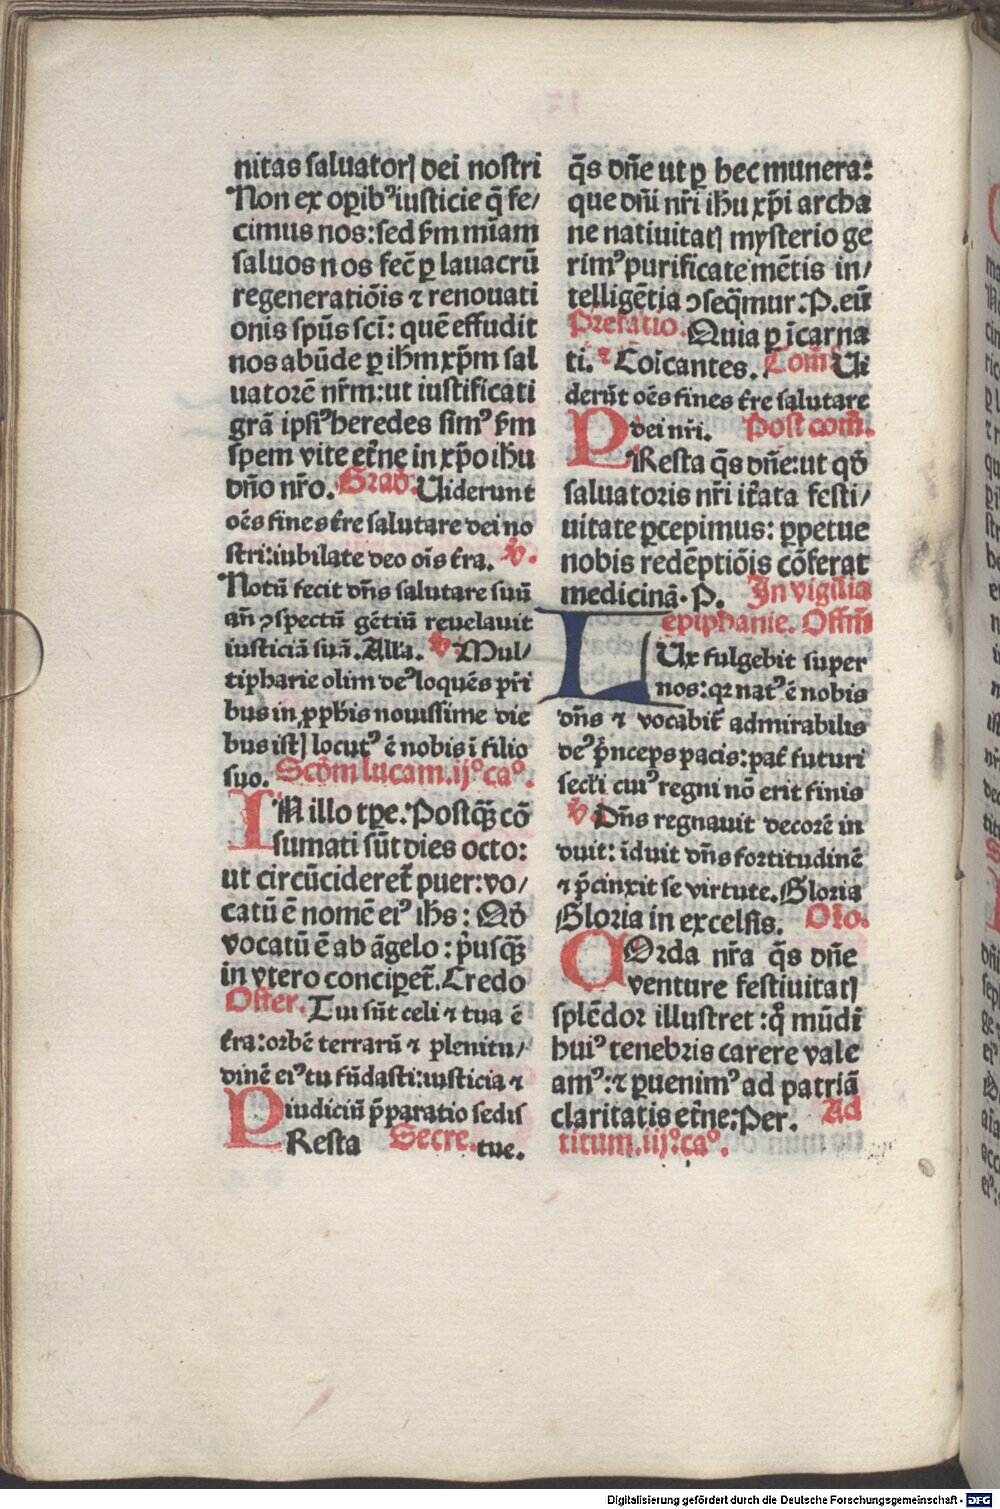 nitas saluatorꝭ dei nostri
Non ex oꝑibꝰ iusticie q̄ fe/
cimus nos: sed ẜm mīam
saluos nos fec̄ ꝑ lauacrū
regeneratiōis ⁊ renouati
onis spūs sct̄i: quē effudit
nos abūde ꝑ ihm̄ xp̄m sal
uatorē nr̄m: ut iustificati
grā ipsiꝰ heredes simꝰ ẜm
spem vite et̄ne in xp̄o ihu
dn̄o nr̄o. Grad̄. Uiderunt
oēs fines t̄re salutare dei no
stri: iubilate deo oīs t̄ra. ℣.
Notū fecit dn̄s salutare suū
an̄ ꝯspectū gētiū reuelauit
iusticiā suā. Alla. ℣. Mul/
tipharie olim deꝰ loquēs pr̄i
bus in ꝓphīs nouissime die
bus istꝭ locutꝰ ē nobis ī filio
suo. Scd̄m lucam. ijº caº.
IN illo tꝑe: Postqꝫ cō
sumati sūt dies octo:
ut circūcideret̄ puer: vo/
catū ē nomē eiꝰ ihs: Qd̄
vocatū ē ab āgelo: p̄usqꝫ
in vtero conciperet̄. Credo
Offer. Tui sūt celi ⁊ tua ē
t̄ra: orbē terrarū ⁊ plenitu/
dinē eiꝰ tu fūdasti: iusticia ⁊
iudiciū p̄paratio sedis
PResta Secre. tue.
q̄s dn̄e ut ꝑ hec munera:
que dn̄i nr̄i ihu xp̄i archa
ne natiuitatꝭ mysterio ge
rimꝰ purificate mētis in/
telligētia ꝯseq̄mur: P. eū
Prefatio. Quia ꝑ īcarna
ti. ⁊ Coīcantes. Com̄ Ui
derūt oēs fines t̄re salutare
dei nr̄i. Post com̄.
PResta q̄s dn̄e: ut qd̄
saluatoris nr̄i it̄ata festi/
uitate ꝑcepimus: ꝑpetue
nobis redēptiōis cōferat
medicinā. P. In vigilia
epiphanie. Offm̄
LUx fulgebit super
nos: qꝛ natꝰ ē nobis
dn̄s ⁊ vocabit̄ admirabilis
deꝰ p̄nceps pacis: pat̄ futuri
secl̄i cuiꝰ regni nō erit finis
℣. Dn̄s regnauit decorē in
duit: īduit dn̄s fortitudinē
⁊ p̄cinxit se virtute. Gloria
Gloria in excelsis. Oīo.
COrda nr̄a q̄s dn̄e
venture festiuitatꝭ
splēdor illustret: q̊ mūdi
huiꝰ tenebris carere vale
amꝰ: ⁊ ꝑuenimꝰ ad patriā
claritatis et̄ne: Per. Ad
titum. iijº caº.
Digitalisierung gefördert durch die Deutsche Forschungsgemeinschaft - DFG